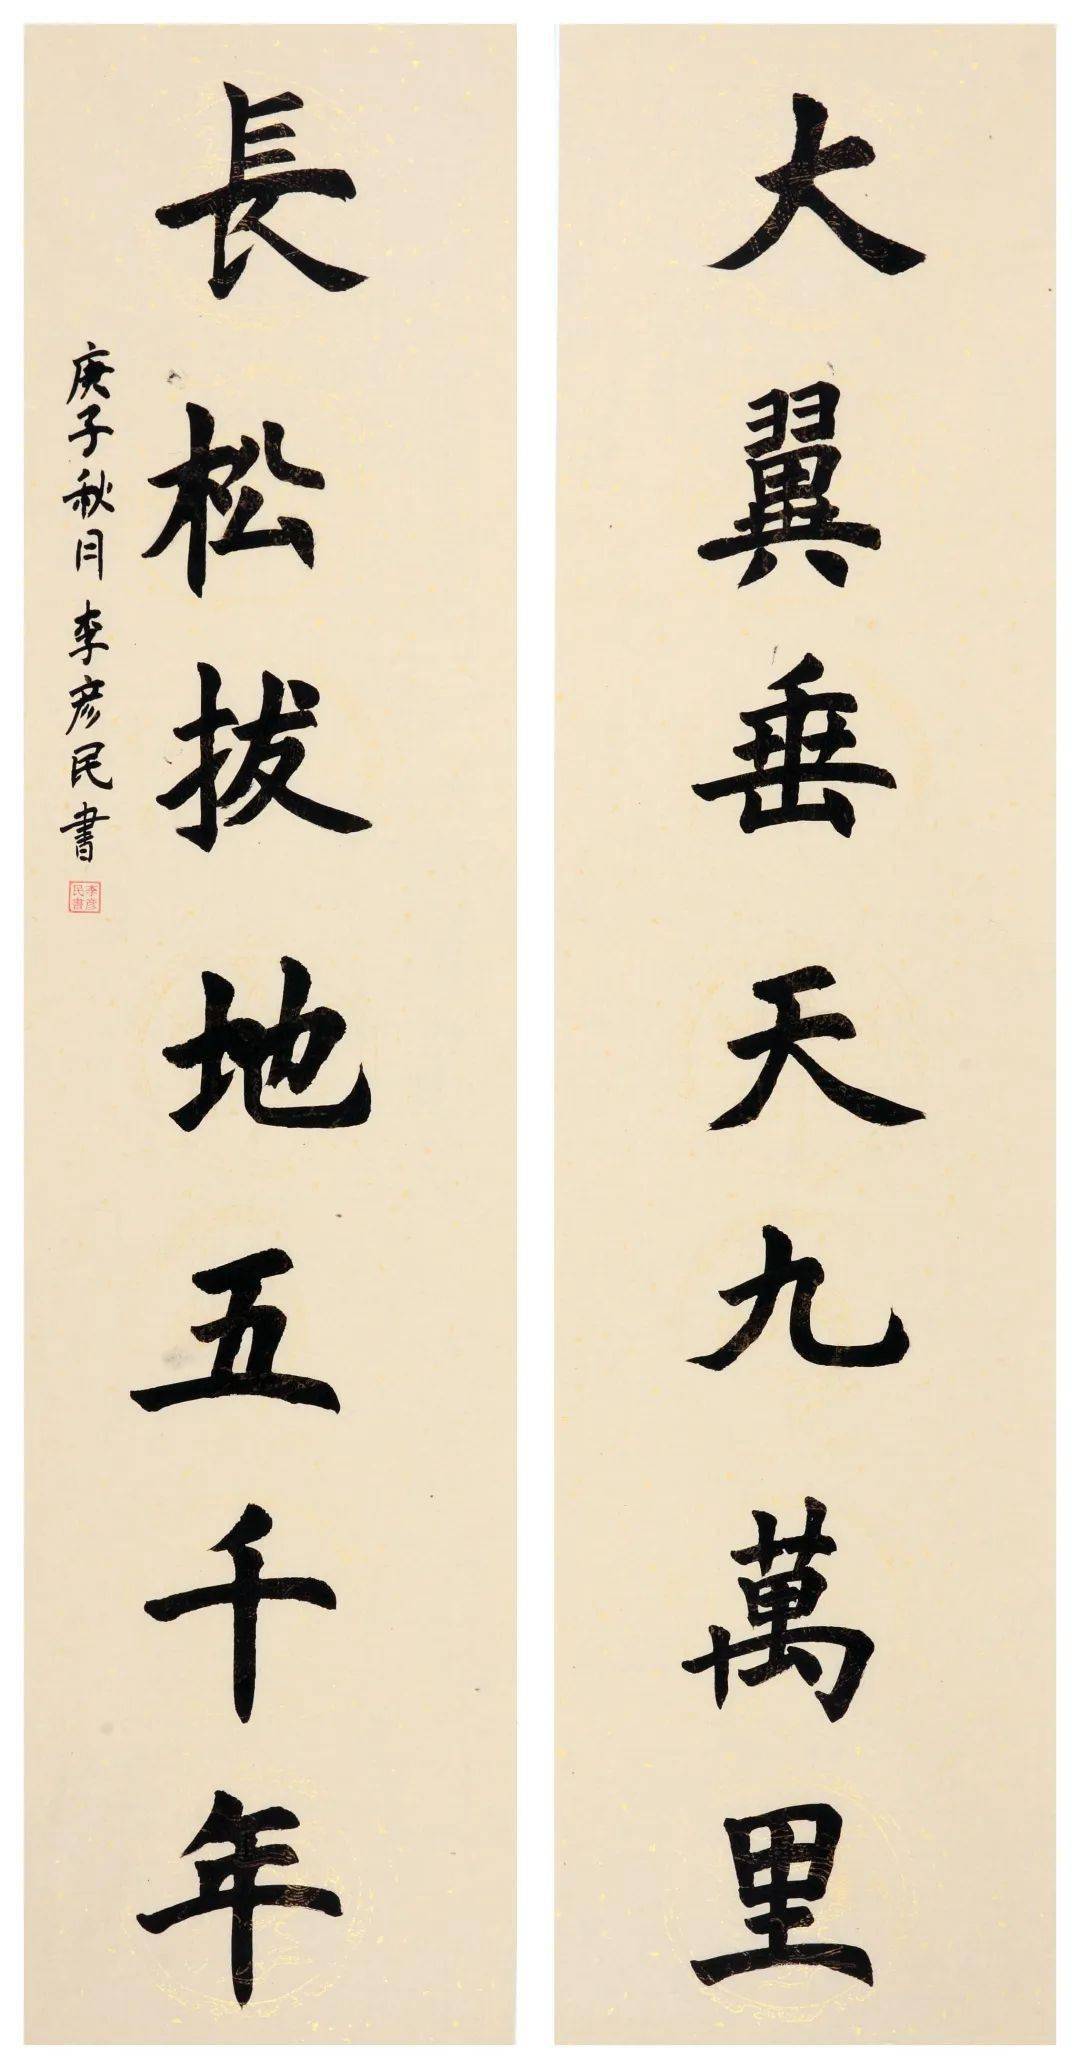 大翼垂天九萬里
長松拔地五千年
庚子秋月李彦民書
李彦
民書